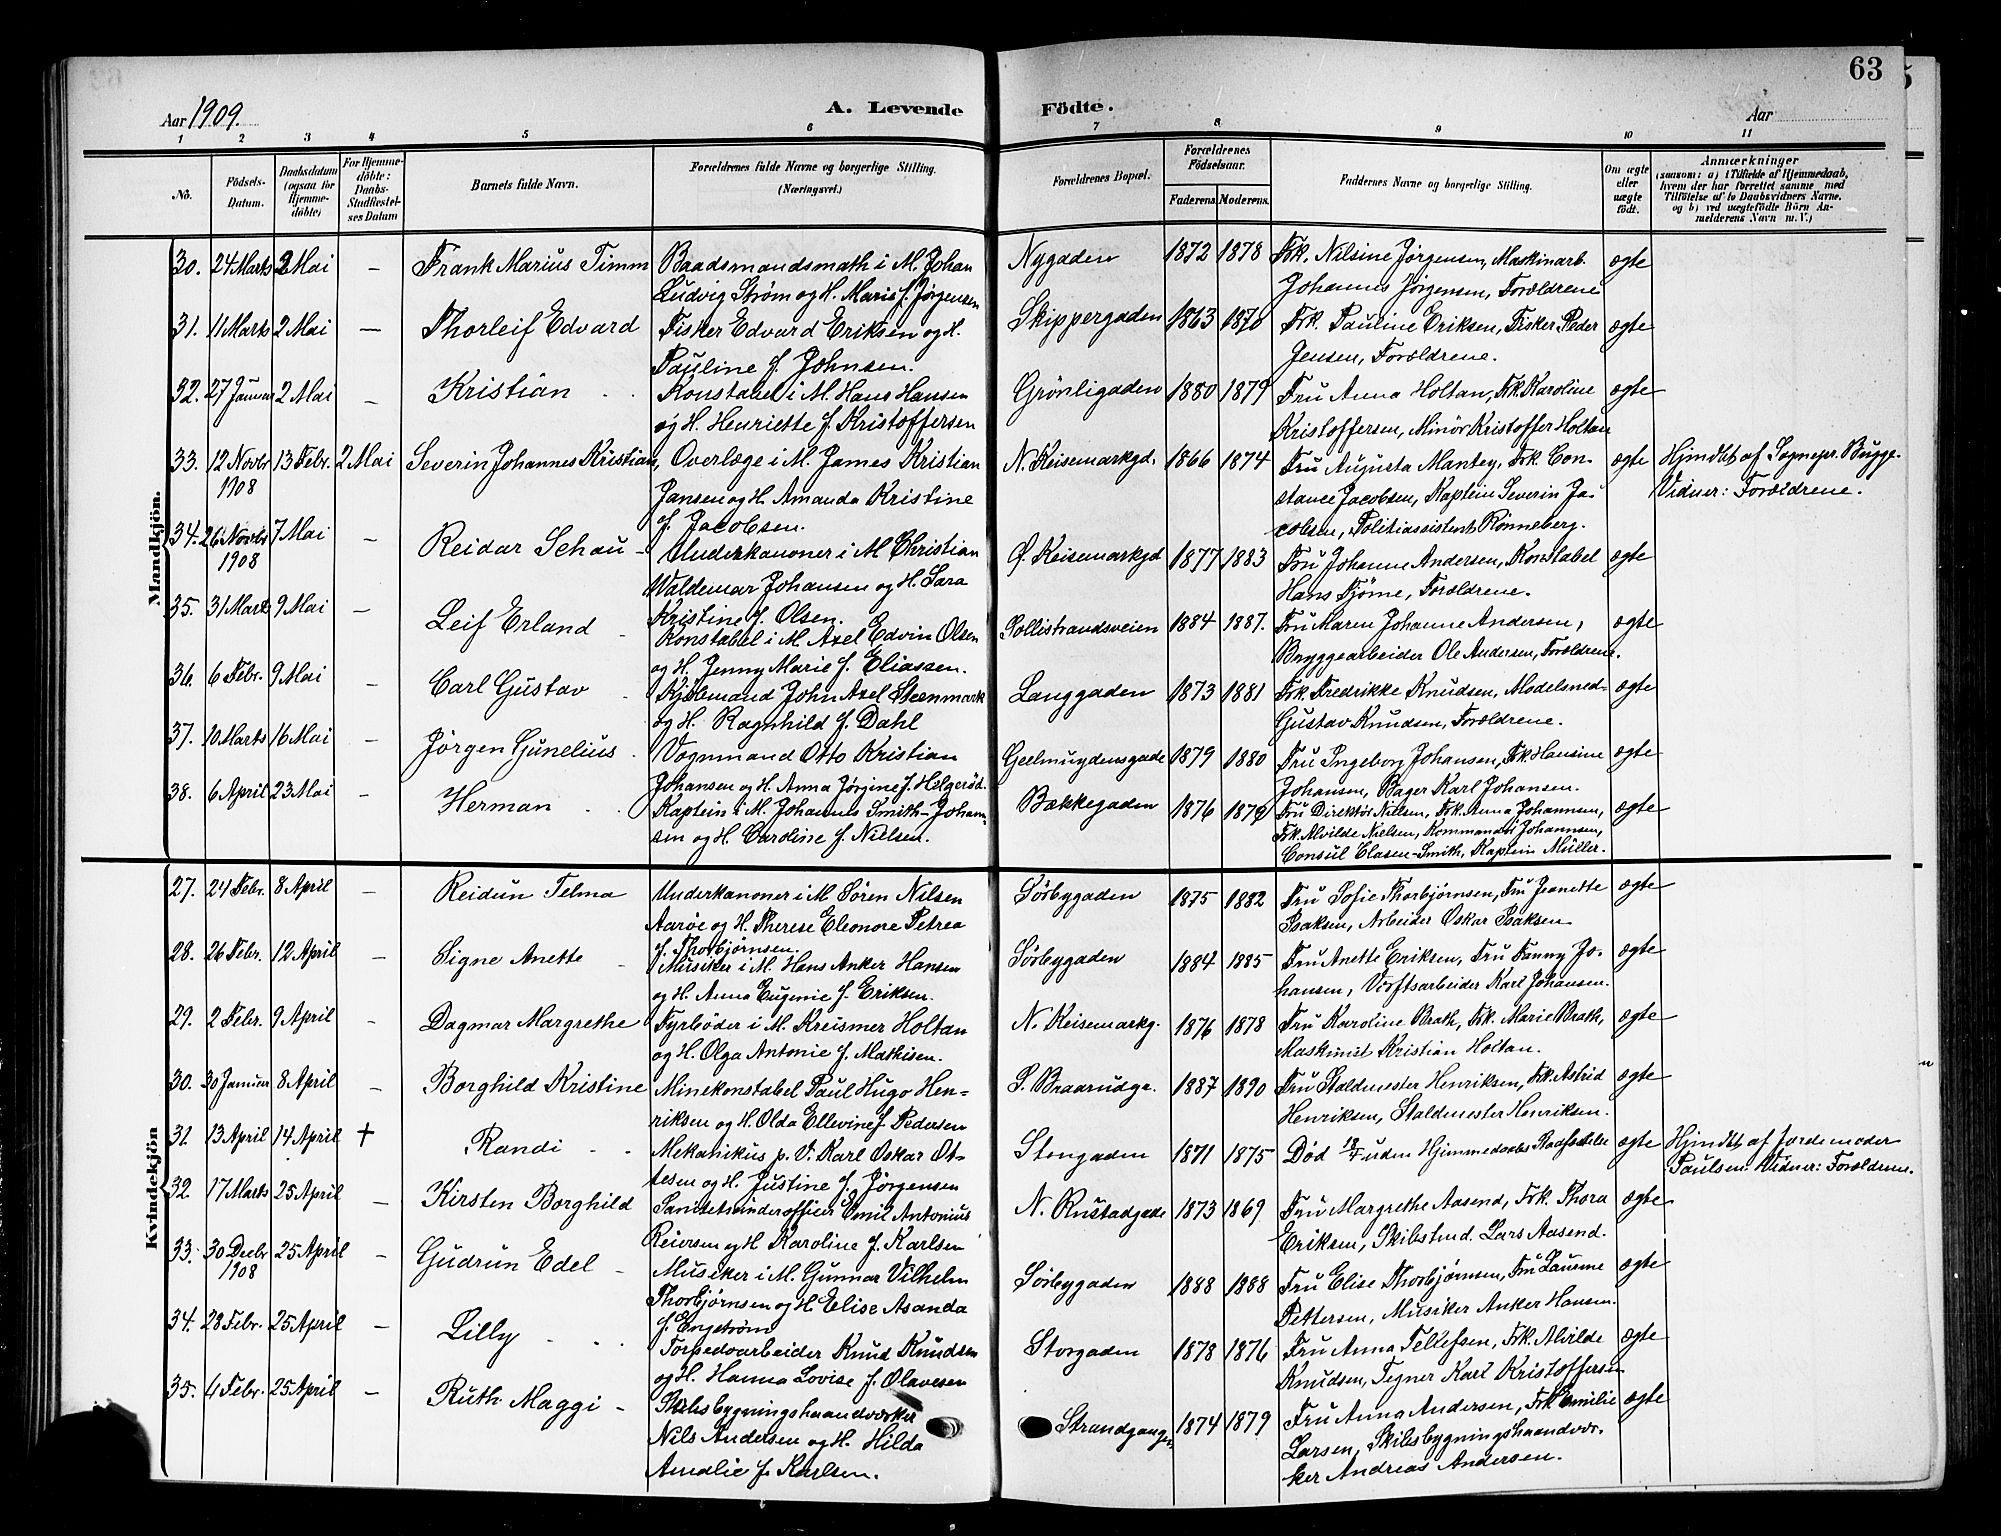 63
Aar 1909.
A. Levende
Födte.
Aar
1 2 3 4 5 6 7 8 9 10 11
No.
Födsels-Datum.
Daabsdatum (ogsaa for Hjemme-döbte)
For Hjemme-döbte: Daabs-Stadfæstel-ses Datum
Barnets fulde Navn.
Forældrenes fulde Navne og borgerlige Stilling.
(Næringsvei.)
Forældrenes Bopæl.
Forældrenes Födselsaar.
Faderens. Moderens.
Faddernes Navne og borgerlige Stilling.
Om ægte eller uægte födt.
Anmærkninger
(saasom: a) i Tilfælde af Hjemmedaab,
hvem der har forrettet samme med
Tilföielse af to Daabsvidners Navne.
og b) ved uægtefödte Börn An-
melderens Navn m. V.)
Mandkjön.
30. 24 Marts 2 Mai — Frank Marius Timm Baadsmandsmath i M. Johan Nygaden 1872 1878 Frk. Nilsine Jørgensen, Maskinarb. ægte
Ludvig Strøm og H. Marie f. Jørgensen Johannes Jørgensen, Forældrene
31. 11 Marts 2 Mai — Thorleif Edvard Fisker Edvard Eriksen og H. Skippergaden 1863 1870 Frk. Pauline Eriksen, Fisker Peder ægte
Pauline f. Johnsen. Jensen, Forældrene.
32. 27 Januar 2 Mai — Kristian Konstabel i M. Hans Hansen Grönligaden 1880 1879 Fru Anna Holtan, Frk. Karoline ægte
og H. Henriette f. Kristoffersen Kristoffersen, Minör Kristoffer Holtan
33. 12 Novbr 13 Febr. 2 Mai Severin Johannes Kristian, Overlæge i M. James Kristian N. Keisemarkgd. 1866 1874 Fru Augusta Mantey, Frk. Con- ægte Hjmdbt af Sognepr. Bugge.
1908 Jansen og H. Amanda Kristine stance Jacobsen, Kaptein Severin Ja- Vidner: Forældrene.
f. Jacobsen. cobsen, Politiassistent Rönneberg.
34. 26 Novbr 7 Mai — Reidar Schau — Underkanoner i M Christian Ø. Keisemarkgd 1877 1883 Fru Johanne Andersen, Konstabel ægte
1908 Waldemar Johansen og H. Sara Hans Tjöme, Forældrene.
Kristine f. Olsen.
35. 31 Marts 9 Mai — Leif Erland Konstabel i M. Axel Edvin Olsen Sollistrandsveien 1884 1887. Fru Maren Johanne Andersen, ægte
og H. Jenny Marie f. Eliassen. Bryggearbeider Ole Andersen, Forældrene.
36. 6 Febr. 9 Mai — Carl Gustav Kjöbmand John Axel Steenmark Langgaden 1873 1881 Frk Fredrikke Knudsen, Modelsned- ægte
og H. Ragnhild f. Dahl Gustav Knudsen, Forældrene.
37. 10 Marts 16 Mai — Jörgen Gunelius Vognmand Otto Kristian Geelmuydensgade 1879 1880 Fru Ingeborg Johansen, Frk. Hansine ægte
Johansen og H. Anna Jørgine f. Helgeröd. Johansen, Bager Karl Johansen.
38. 6 April 23 Mai — Herman Kaptein i M. Johannes Smith-Johann- Bækkegaden 1876 1879 Fru Direktör Nielsen, Frk. Anna Johannsen, ægte
sen og H. Caroline f. Nielsen. Frk. Alvilde Nielsen, Kommandör Johannsen,
Consul Clasen-Smith, Kaptein Müller.
Kvindekjön
27. 24 Febr. 8 April — Reidun Telma Underkanoner i M Sören Nilsen Sörbygaden 1875 1882 Fru Sofie Thorbjørnsen, Fru Jeanette ægte
Aaröe og H. Therese Eleonore Petrea Isaksen, Arbeider Oskar Isaksen
f. Thorbjørnsen.
28. 26 Febr. 12 April — Signe Anette Musiker i M. Hans Anker Hansen Sörbygaden 1884 1885 Fru Anette Eriksen, Fru Fanny Jo- ægte
og H. Anna Eugenie f. Eriksen. hansen, Værftsarbeider Karl Johansen.
29. 2 Febr. 9 April — Dagmar Margrethe Fyrböder i M. Kreismer Holtan N. Keisemarkg. 1876 1878 Fru Karoline Brath, Frk. Marie Brath, ægte
og H. Olga Antonie f. Mathisen. Maskinist Kristian Holtan.
30. 30 Januar 8 April — Borghild Kristine Minekonstabel Paul Hugo Hen- S. Braarudgr. 1887 1890 Fru Staldmester Henriksen, Frk. Astrid ægte
riksen og H. Olda Ellevine f Pedersen Henriksen, Staldmester Henriksen.
31. 13 April 14 April † Randi Mekanikus p. V. Karl Oskar Ot- Storgaden 1871 1875 Död uden Hjemmedaabs ægte Hjmdbt af Jordemoder
tesen og H. Justine f. Jørgensen Paulsen. Vidner: Forældrene.
32. 17 Marts 25 April — Kirsten Borghild Sanitetsunderofficer Emil Antonius N. Rustadgade 1873 1869 Fru Margrethe Aasend, Frk. Thora ægte
Reiersen og H Karoline f. Karlsen Eriksen, Skibstmd. Lars Aasend.
33. 30 Decbr 25 April — Gudrun Edel — Musiker i M. Gunnar Vilhelm Sörbygaden 1888 1888 Fru Elise Thorbjørnsen, Fru Laurine ægte
1908 Thorbjørnsen og H Elise Asanda Pettersen, Musiker Anker Hansen.
f. Engström
34. 28 Febr. 25 April — Lilly Torpedoarbeider Knud Knudsen Storgaden 1878 1876 Fru Anna Tellefsen, Frk. Alvilde ægte
og H. Hanna Lovise f. Olavesen Knudsen, Tegner Karl Kristoffersen
35. 4 Febr. 25 April — Ruth Maggi — Skibsbygningshaandværker Strandgangen 1874 1879 Fru Anna Andersen, Frk Emilie ægte
Nils Andersen og H. Hilda Larsen, Skibsbygningshaandvær-
Amalie f. Karlsen. ker Andreas Andersen.